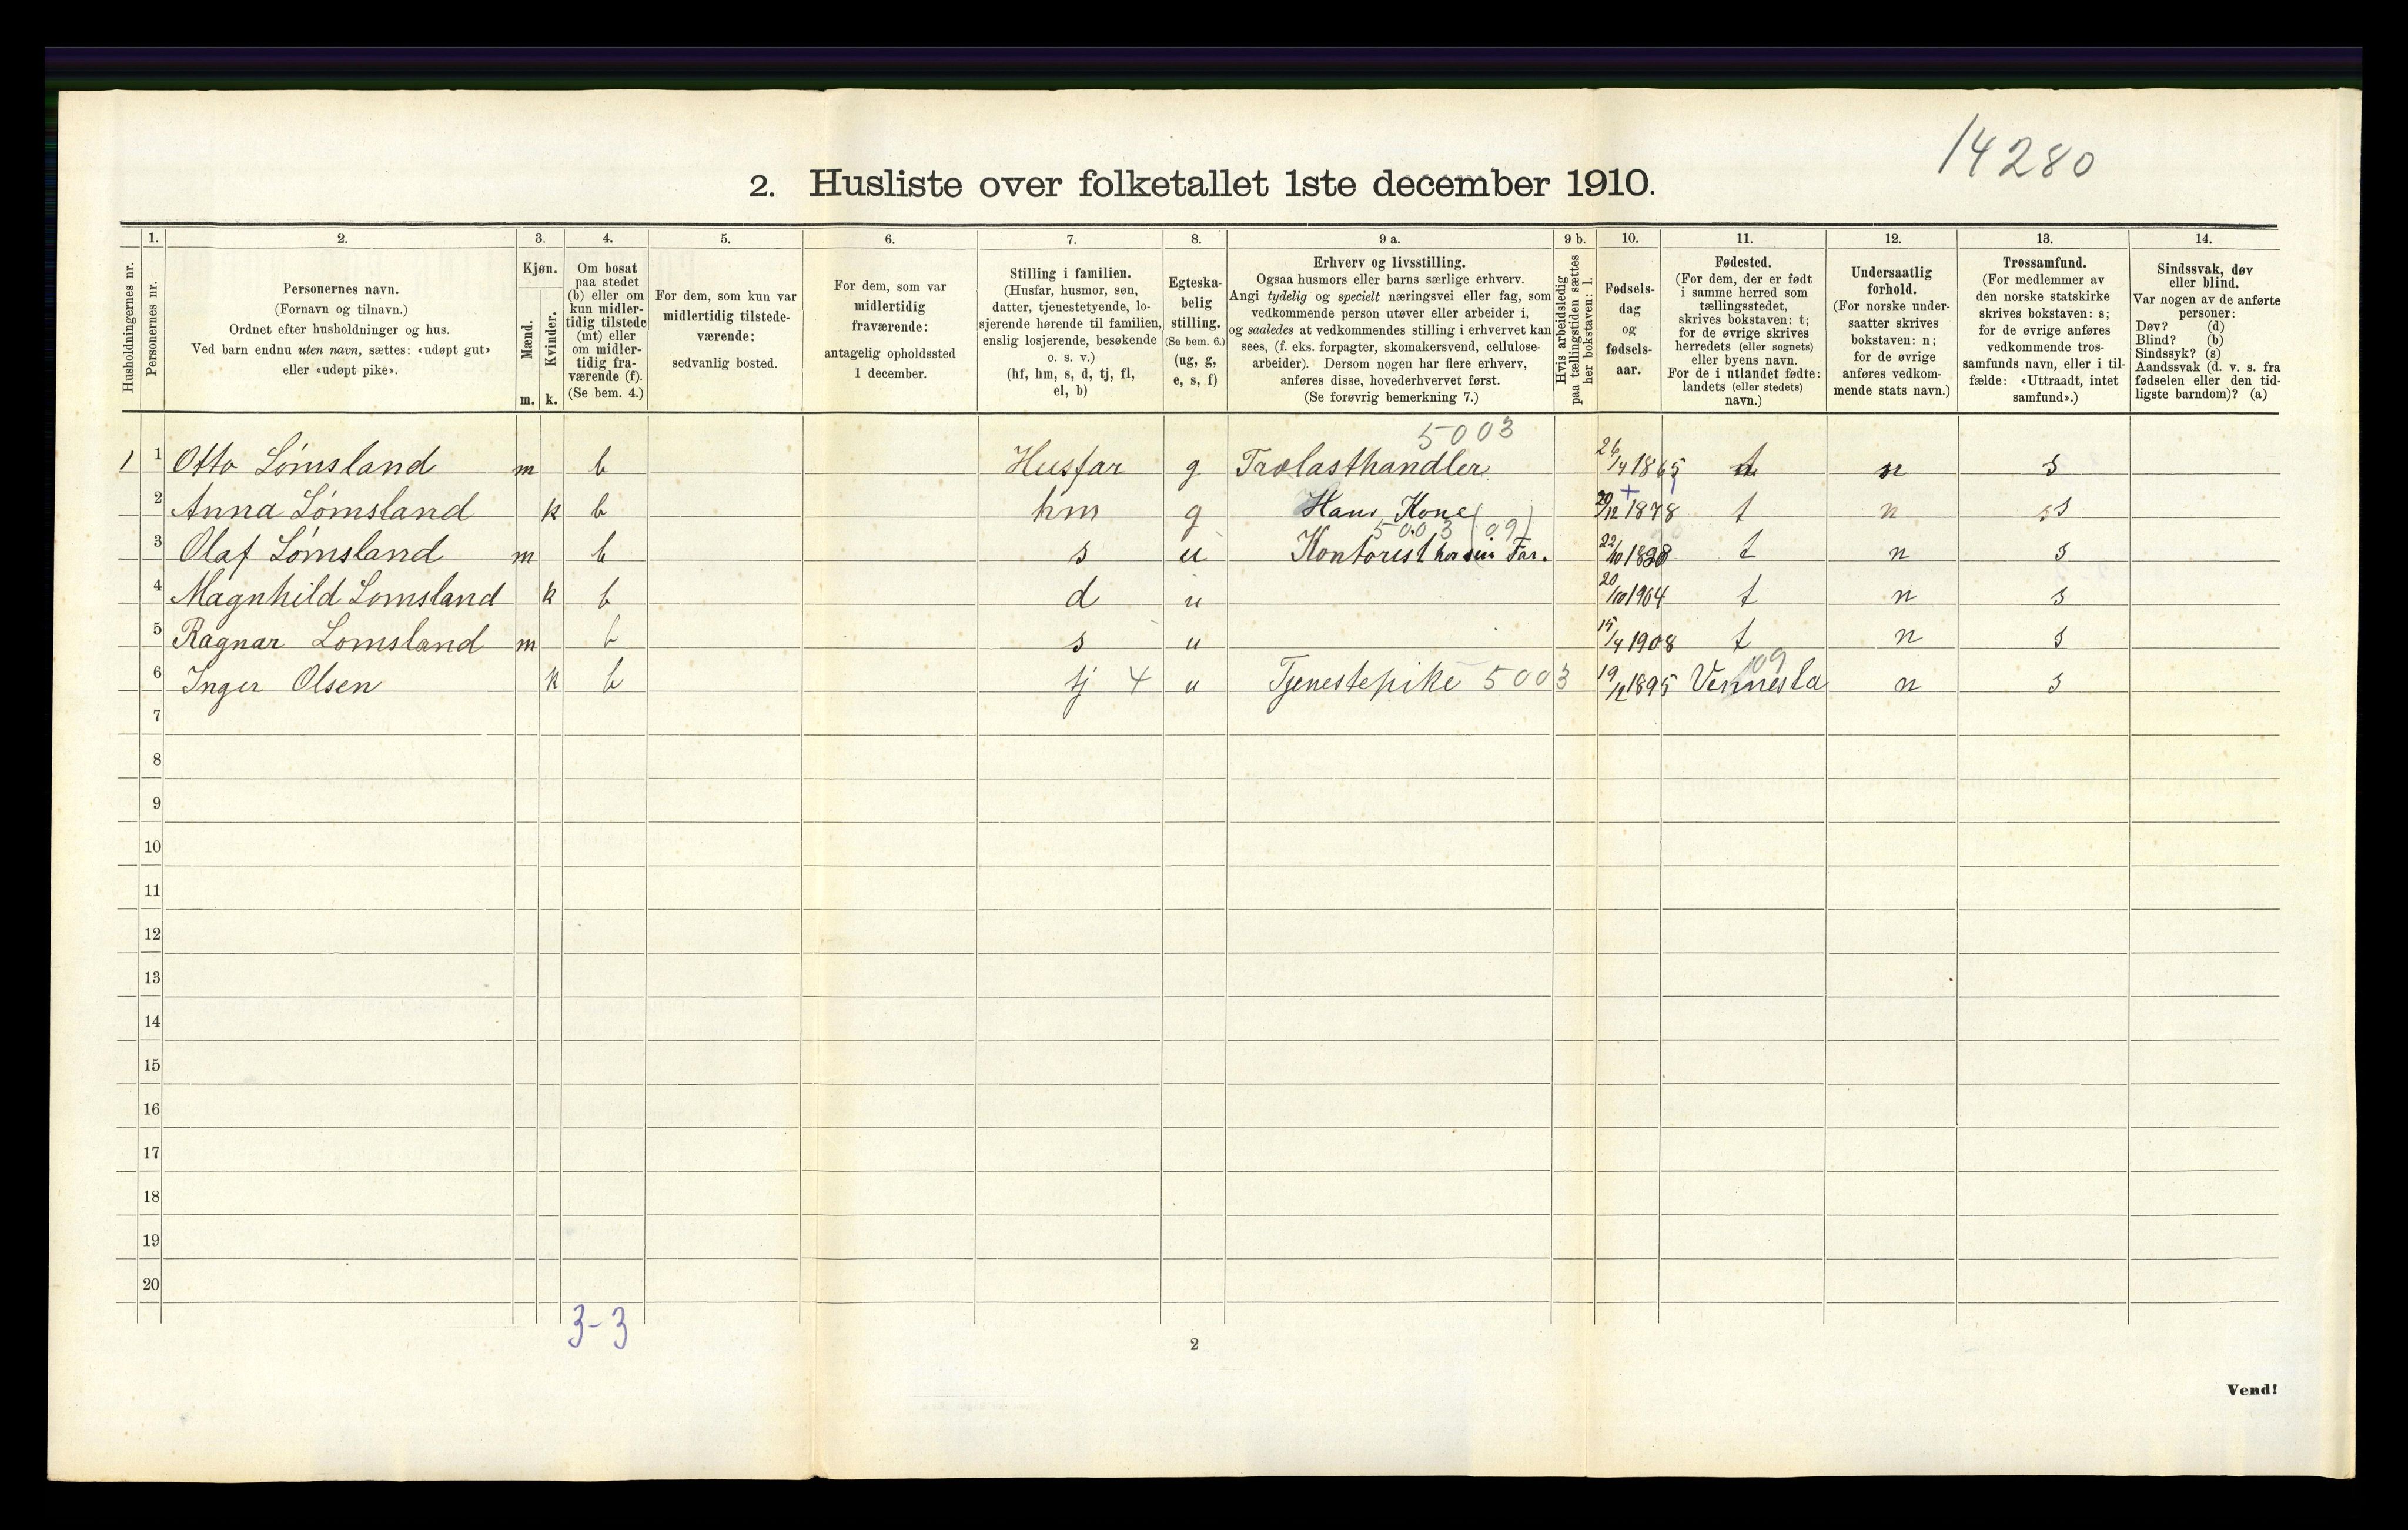 14280
2. Husliste over folketallet 1ste december 1910.
Husholdningernes nr.
1. Personernes nr.
2. Personernes navn.
(Fornavn og tilnavn.)
Ordnet efter husholdninger og hus.
Ved barn endnu uten navn, sættes: «udøpt gut»
eller «udøpt pike».
3. Kjøn.
Mænd. m.
Kvinder. k.
4. Om bosat
paa stedet
(b) eller om
kun midler-
tidig tilstede
(mt) eller
om midler-
tidig fra-
værende (f).
(Se bem. 4.)
5. For dem, som kun var
midlertidig tilstede-
værende:
sedvanlig bosted.
6. For dem, som var
midlertidig
fraværende:
antagelig opholdssted
1 december.
7. Stilling i familien.
(Husfar, husmor, søn,
datter, tjenestetyende, lo-
sjerende hørende til familien,
enslig losjerende, besøkende
o. s. v.)
(hf, hm, s, d, tj, fl,
el, b)
8. Egteska-
belig
stilling.
(Se bem. 6.)
(ug, g,
e, s, f)
9 a. Erhverv og livsstilling.
Ogsaa husmors eller barns særlige erhverv.
Angi tydelig og specielt næringsvei eller fag, som
vedkommende person utøver eller arbeider i,
og saaledes at vedkommendes stilling i erhvervet kan
sees, (f. eks. forpagter, skomakersvend, cellulose-
arbeider). Dersom nogen har flere erhverv,
anføres disse, hovederhvervet først.
(Se forøvrig bemerkning 7.)
9 b. Hvis arbeidsledig
paa tællingstiden sættes
her bokstaven: l.
10. Fødsels-
dag
og
fødsels-
aar.
11. Fødested.
(For dem, der er født
i samme herred som
tællingsstedet,
skrives bokstaven: t;
for de øvrige skrives
herredets (eller sognets)
eller byens navn.
For de i utlandet fødte:
landets (eller stedets)
navn.)
12. Undersaatlig
forhold.
(For norske under-
saatter skrives
bokstaven: n;
for de øvrige
anføres vedkom-
mende stats navn.)
13. Trossamfund.
(For medlemmer av
den norske statskirke
skrives bokstaven: s;
for de øvrige anføres
vedkommende tros-
samfunds navn, eller i til-
fælde: «Uttraadt, intet
samfund».)
14. Sindssvak, døv
eller blind.
Var nogen av de anførte
personer:
Døv? (d)
Blind? (b)
Sindssyk? (s)
Aandssvak (d. v. s. fra
fødselen eller den tid-
ligste barndom)? (a)
5003
1 1 Otto Lömsland m b Husfar g Trælasthandler 26/4 1865 t n s
2 Anna Lömsland k b hm g Hans Kone 20/12 1878 t n s
5003 (09)
3 Olaf Lömsland m b s u Kontorist hos sin Far. 22/10 1898 t n s
4 Magnhild Lomsland k b d u 20/10 1904 t n s
5 Ragnar Lomsland m b s u 15/4 1908 t n s
109
6 Inger Olsen k b tj 4 u Tjenestepike 5003 19/12 1895 Vennesla n s
7
8
9
10
11
12
13
14
15
16
17
18
19
20
3-3
2
Vend!